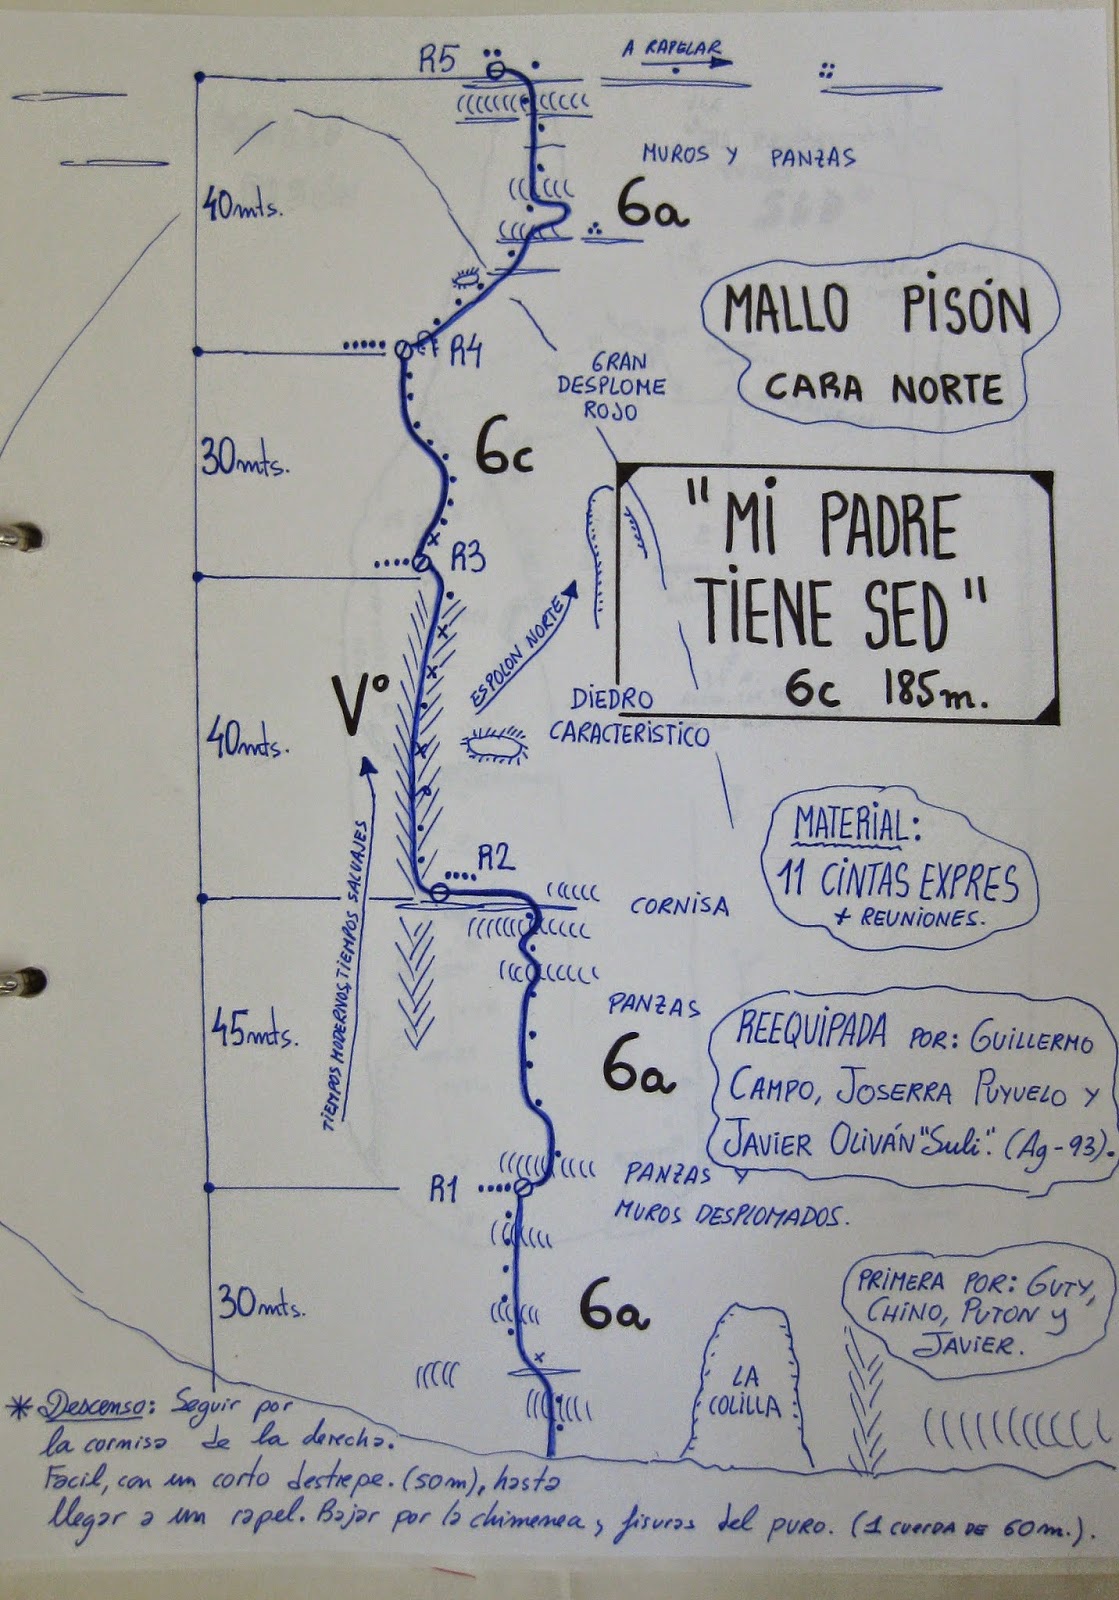 R5
A RAPELAR
MUROS Y PANZAS
40mts.
6a
MALLO PISÓN
CARA NORTE
R4
GRAN
DESPLOME
ROJO
30mts.
6c
"MI PADRE
TIENE SED"
6c 185m.
R3
ESPOLON NORTE
Vº
DIEDRO
CARACTERISTICO
40mts.
MATERIAL:
11 CINTAS EXPRES
+ REUNIONES.
R2
CORNISA
TIEMPOS MODERNOS, TIEMPOS SALVAJES
45mts.
PANZAS
6a
REEQUIPADA POR: GUILLERMO
CAMPO, JOSERRA PUYUELO Y
JAVIER OLIVÁN "Suli". (Ag-93).
R1
PANZAS Y
MUROS DESPLOMADOS.
30mts.
6a
PRIMERA POR: GUTY,
CHINO, PUTON Y
JAVIER.
LA
COLILLA
* Descenso: Seguir por
la cornisa de la derecha.
Facil, con un corto destrepe. (50m), hasta
llegar a un rapel. Bajar por la chimenea y fisuras del PURO. (1 CUERDA DE 60m.).